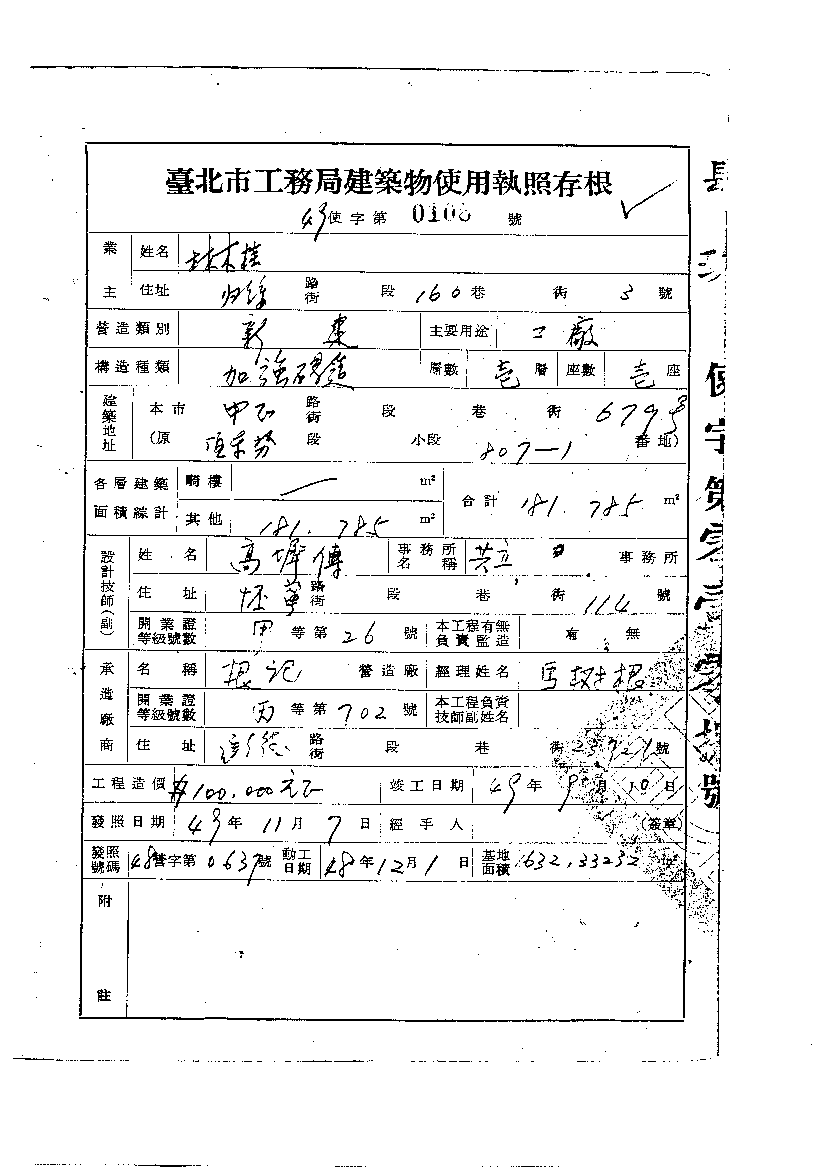 臺北市工務局建築物使用執照存根
49使字第 0108 號
業主 姓名 林木桂
住址 归綏 路街 段 160 巷 街 3 號
營造類別 新建 主要用途 工廠
構造種類 加強磚造 層數 壱 層 座數 壱 座
建築地址 本市 中正 路街 段 巷 街 679號
(原 段 小段 807-1 番地)
各層建築面積線計 騎樓 — m² 合計 181.785 m²
其他 181.785 m²
設計技師(副) 姓名 高墀傳 事務所名稱 共立 事務所
住址 路街 段 巷 街 114 號
開業證等級號數 甲 等第 26 號 本工程有無負責監造 有 無
承造廠商 名稱 根記 營造廠 經理姓名 馬
開業證等級號數 丙 等第 702 號 本工程負責技師副姓名
住址 路街 段 巷 街 號
工程造價 #100,000元正 竣工日期 49年9月10日
發照日期 49年11月7日 經手人 (簽章)
發照號碼 48營字第0637號 動工日期 48年12月1日 基地面積 1632.33232 m²
附註
使字第零壹零捌號